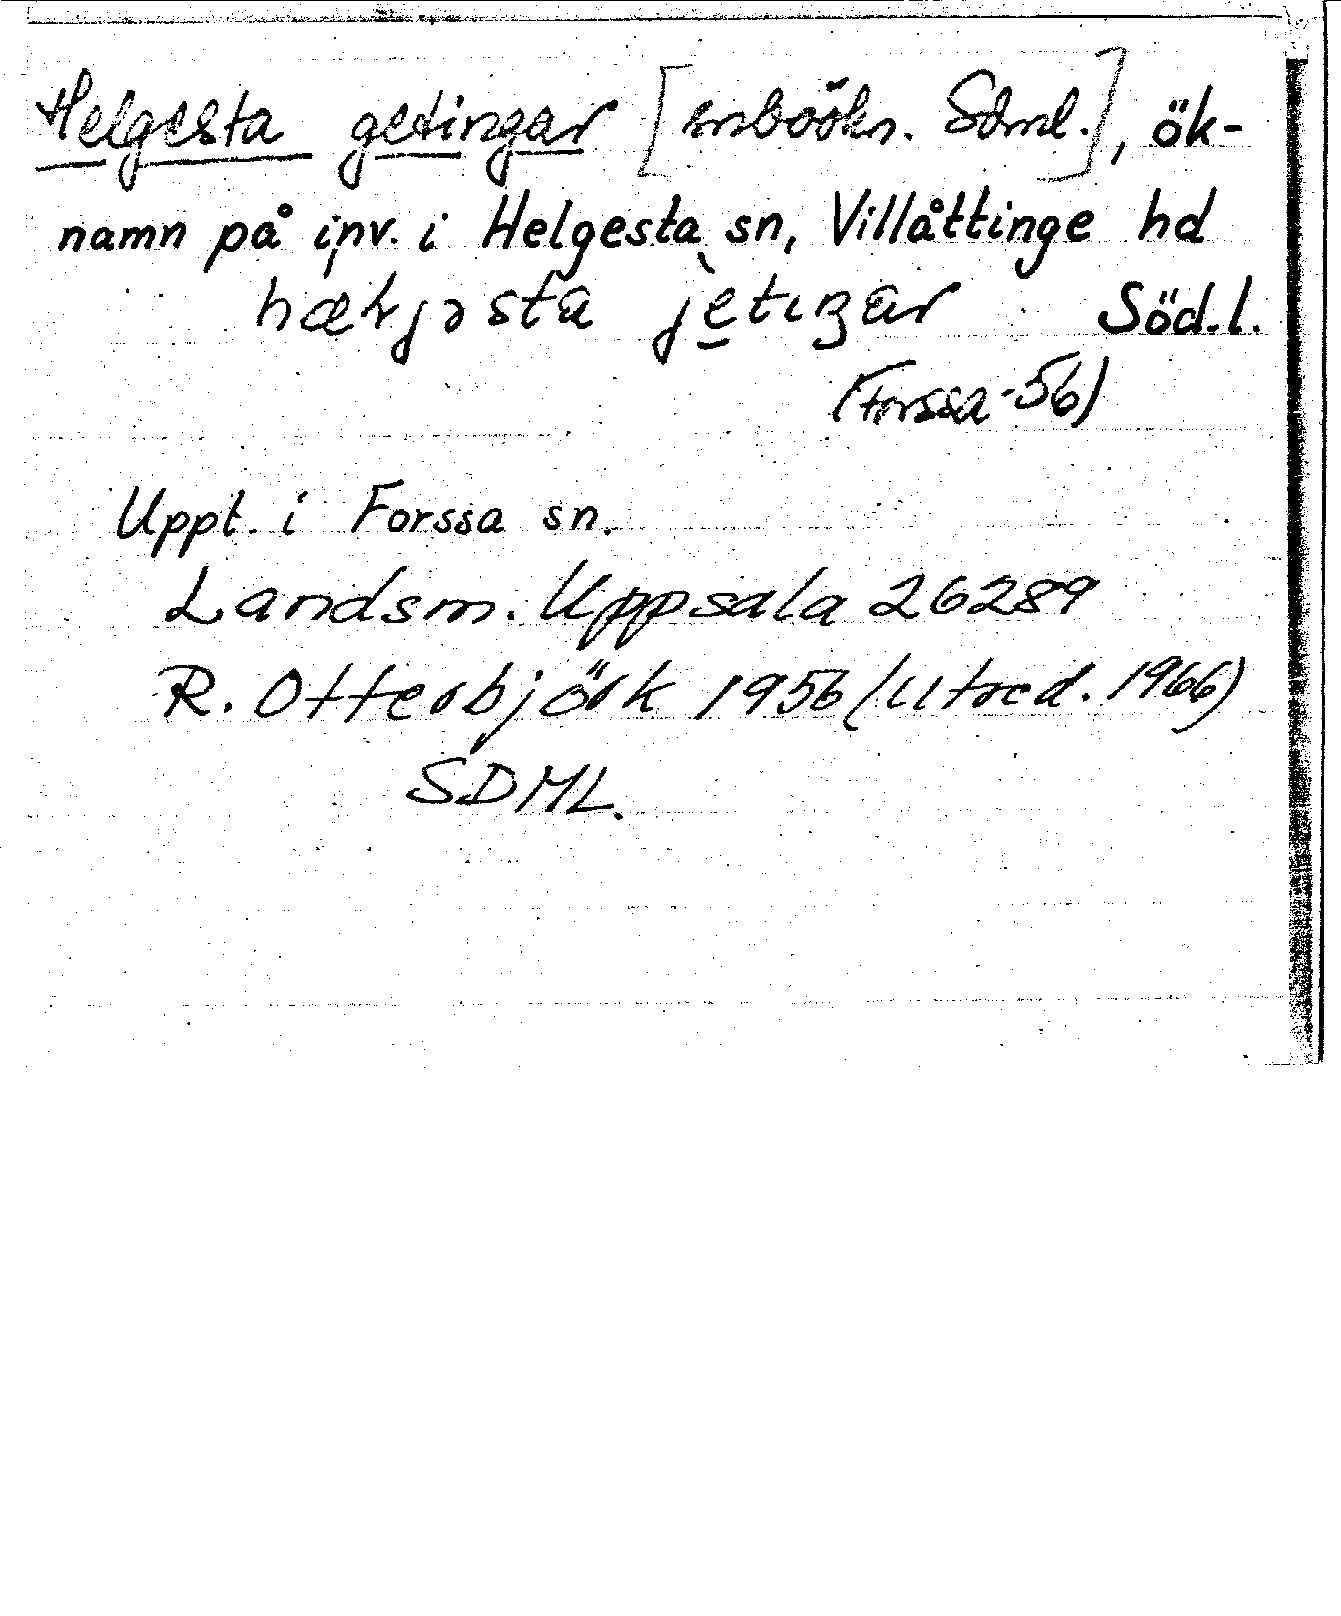 Helgesta getingar [snboökn. Sdml.], ök-
namn på inv. i Helgesta sn, Villåttinge hd
hæłjəsta jètıŋar Söd.l.
(Forssa -56)
Uppt. i Forssa sn.
Landsm. Uppsala 26289
R. Otterbjörk 1956 (Utred. 1966)
SDML.